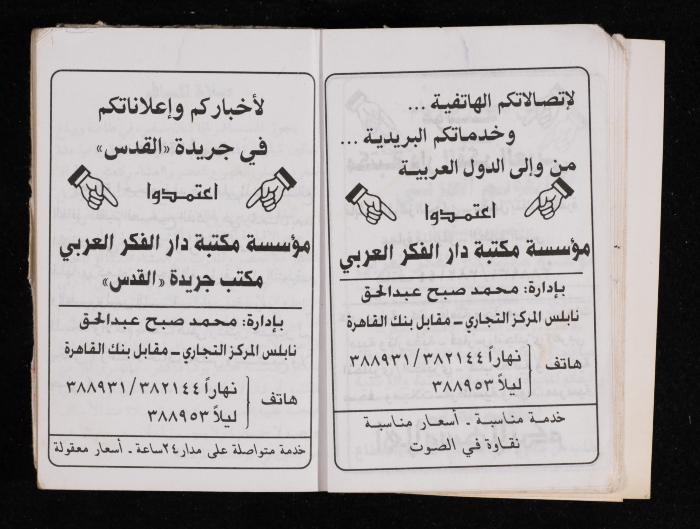 لإتصالاتكم الهاتفية ...
وخدماتكم البريدية ...
من وإلى الدول العربية
اعتمدوا
مؤسسة مكتبة دار الفكر العربي
بإدارة: محمد صبح عبدالحق
نابلس المركز التجاري – مقابل بنك القاهرة
هاتف
نهاراً ٣٨٢١٤٤/٣٨٨٩٣١
ليلاً ٣٨٨٩٥٣
خدمة مناسبة - أسعار مناسبة
نقاوة في الصوت
لأخباركم وإعلاناتكم
في جريدة «القدس»
اعتمدوا
مؤسسة مكتبة دار الفكر العربي
مكتب جريدة «القدس»
بإدارة: محمد صبح عبدالحق
نابلس المركز التجاري – مقابل بنك القاهرة
هاتف
نهاراً ٣٨٢١٤٤/٣٨٨٩٣١
ليلاً ٣٨٨٩٥٣
خدمة متواصلة على مدار ٢٤ساعة - أسعار معقولة